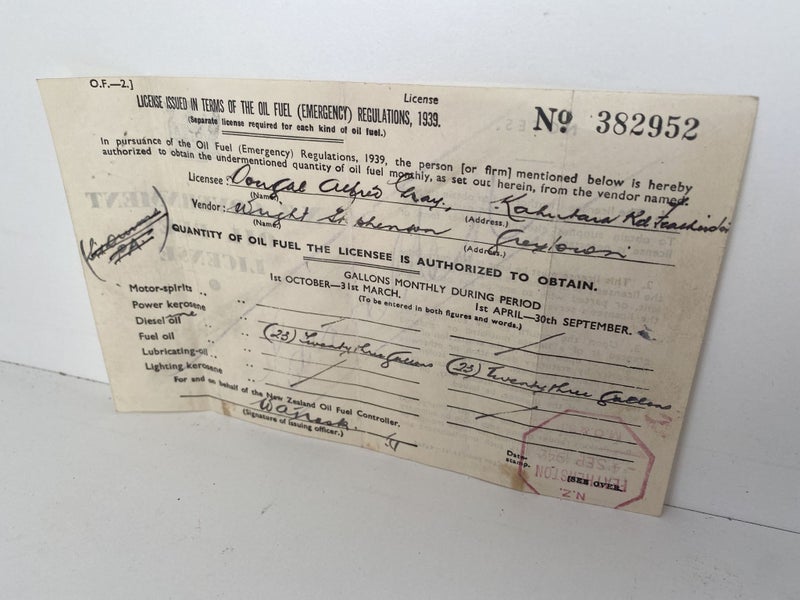 O.F.—2.]
License
LICENSE ISSUED IN TERMS OF THE OIL FUEL (EMERGENCY) REGULATIONS, 1939.
(Separate license required for each kind of oil fuel.)
Nº 382952
In pursuance of the Oil Fuel (Emergency) Regulations, 1939, the person [or firm] mentioned below is hereby
authorized to obtain the undermentioned quantity of oil fuel monthly, as set out herein, from the vendor named.
Licensee: Dougal Alfred Gray, Kahutara Rd Featherston
(Name) (Address.)
Vendor: Wright Stephenson Greytown
(Name) (Address.)
QUANTITY OF OIL FUEL THE LICENSEE IS AUTHORIZED TO OBTAIN.
GALLONS MONTHLY DURING PERIOD
1st OCTOBER—31st MARCH. 1st APRIL—30th SEPTEMBER.
(To be entered in both figures and words.)
Motor-spirits ..
Power kerosene ..
Diesel oil ..
Fuel oil .. (23) Twenty three Gallons (23) Twenty three Gallons
Lubricating-oil ..
Lighting kerosene ..
For and on behalf of the New Zealand Oil Fuel Controller.
(Signature of issuing officer.)
Date-
stamp.
[SEE OVER.
FEATHERSTON
N.Z.